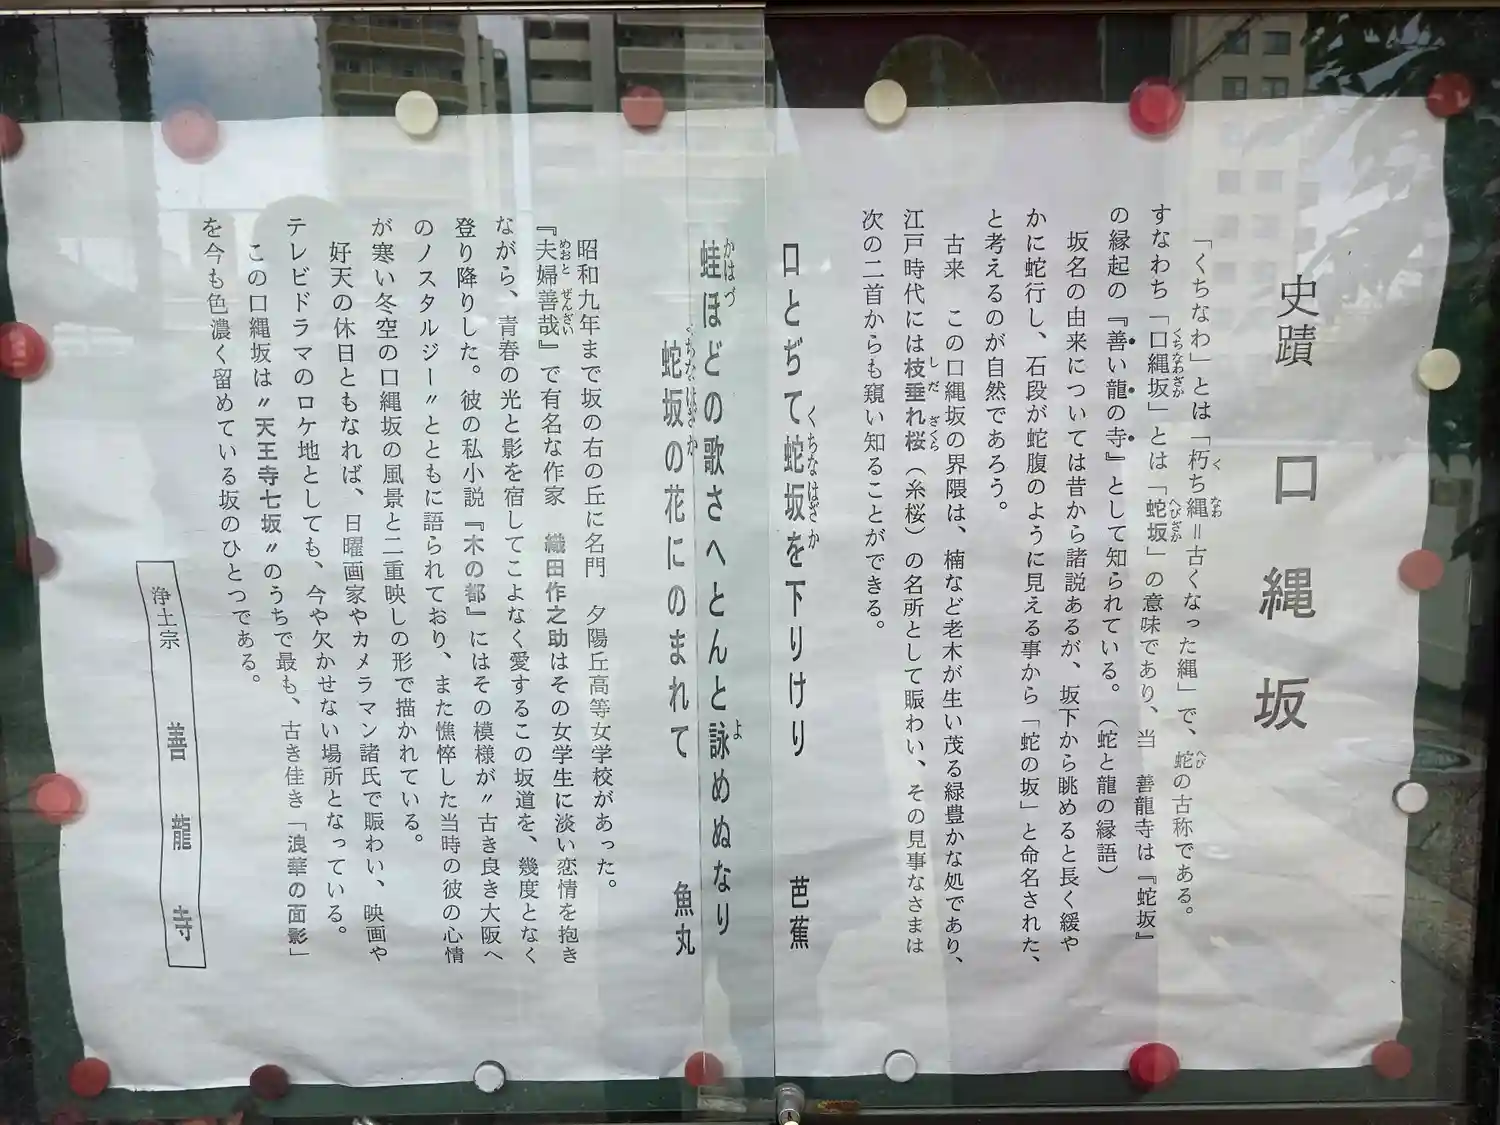 史蹟 口縄坂
「くちなわ」とは「朽ち縄＝古くなった縄」で、蛇の古称である。
すなわち「口縄坂」とは「蛇坂」の意味であり、当 善龍寺は『蛇坂』
の縁起の『善い龍の寺』として知られている。（蛇と龍の縁語）
坂名の由来については昔から諸説あるが、坂下から眺めると長く緩や
かに蛇行し、石段が蛇腹のように見える事から「蛇の坂」と命名された、
と考えるのが自然であろう。
古来 この口縄坂の界隈は、楠など老木が生い茂る緑豊かな処であり、
江戸時代には枝垂れ桜（糸桜）の名所として賑わい、その見事なさまは
次の二首からも窺い知ることができる。
口とぢて蛇坂を下りけり 芭蕉
蛙ほどの歌さへとんと詠めぬなり
蛇坂の花にのまれて 魚丸
昭和九年まで坂の右の丘に名門 夕陽丘高等女学校があった。
『夫婦善哉』で有名な作家 織田作之助はその女学生に淡い恋情を抱き
ながら、青春の光と影を宿してこよなく愛するこの坂道を、幾度となく
登り降りした。彼の私小説『木の都』にはその模様が〃古き良き大阪へ
のノスタルジー〃とともに語られており、また憔悴した当時の彼の心情
が寒い冬空の口縄坂の風景と二重映しの形で描かれている。
好天の休日ともなれば、日曜画家やカメラマン諸氏で賑わい、映画や
テレビドラマのロケ地としても、今や欠かせない場所となっている。
この口縄坂は〃天王寺七坂〃のうちで最も、古き佳き「浪華の面影」
を今も色濃く留めている坂のひとつである。
浄土宗 善龍寺